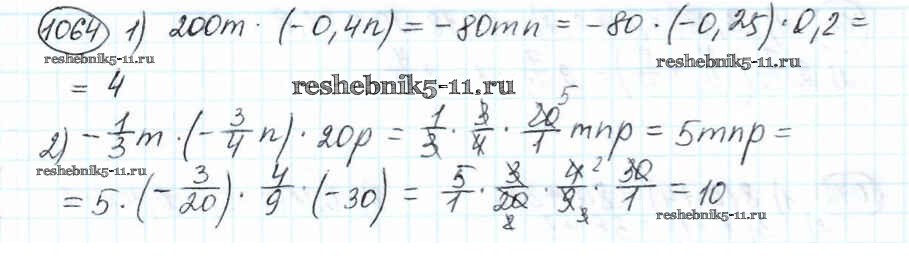 1064 1) 200m · (-0,4n) = -80mn = -80 · (-0,25) · 0,2 =
reshebnik5-11.ru reshebnik5-11.ru
= 4 reshebnik5-11.ru
2) -1/3 m · (-3/4 n) · 20p = 1/3 · 3/4 · 20/1 5 mnp = 5mnp =
reshebnik5-11.ru
= 5 · (-3/20) · 4/9 · (-30) = 5/1 · 3/20 2 · 4 2/9 3 · 30/1 = 10
reshebnik5-11.ru